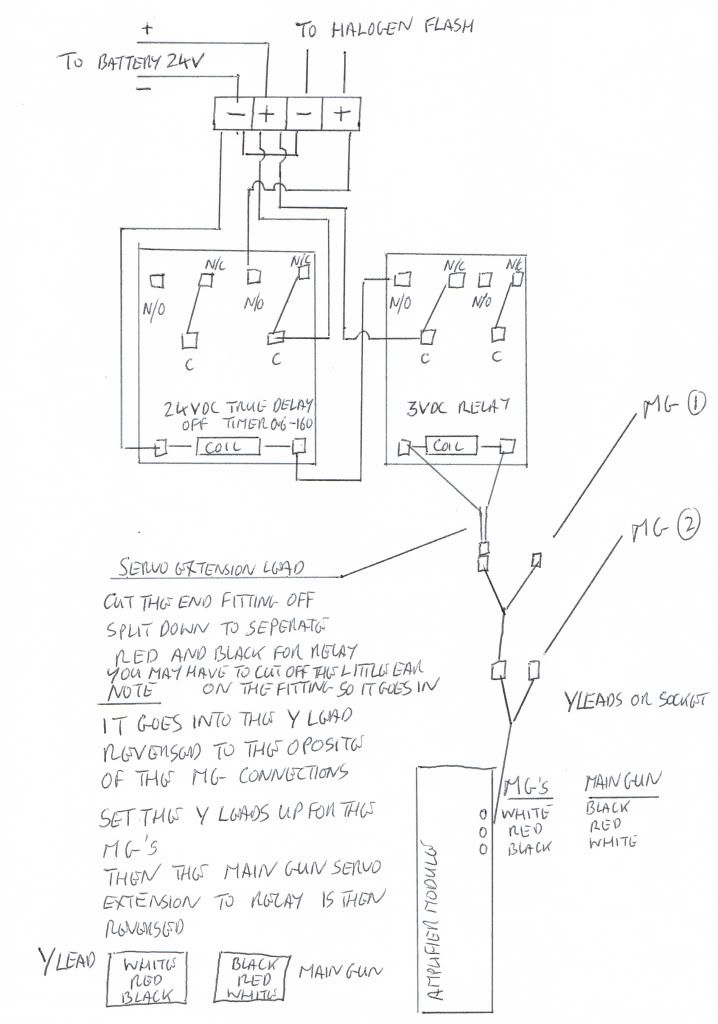 + TO HALOGEN FLASH
TO BATTERY 24V
−
− + − +
N/C N/C
N/O N/O
C C
24VDC TRUE DELAY
OFF TIMER 0.6-160
COIL
N/C N/C
N/O N/O
C C
3VDC RELAY
COIL
MG 1
MG 2
SERVO EXTENSION LEAD
CUT THE END FITTING OFF
SPLIT DOWN TO SEPERATE
RED AND BLACK FOR RELAY
YOU MAY HAVE TO CUT OFF THE LITTLE EAR
NOTE ON THE FITTING SO IT GOES IN
IT GOES INTO THE Y LEAD
REVERSED TO THE OPOSITE
OF THE MG CONNECTIONS
SET THE Y LEADS UP FOR THE
MG'S
THEN THE MAIN GUN SERVO
EXTENSION TO RELAY IS THEN
REVERSED
Y LEADS OR SOCKET
MG'S MAIN GUN
WHITE BLACK
RED RED
BLACK WHITE
AMPLIFIER MODULE
Y LEAD
WHITE
RED
BLACK
BLACK
RED
WHITE
MAIN GUN